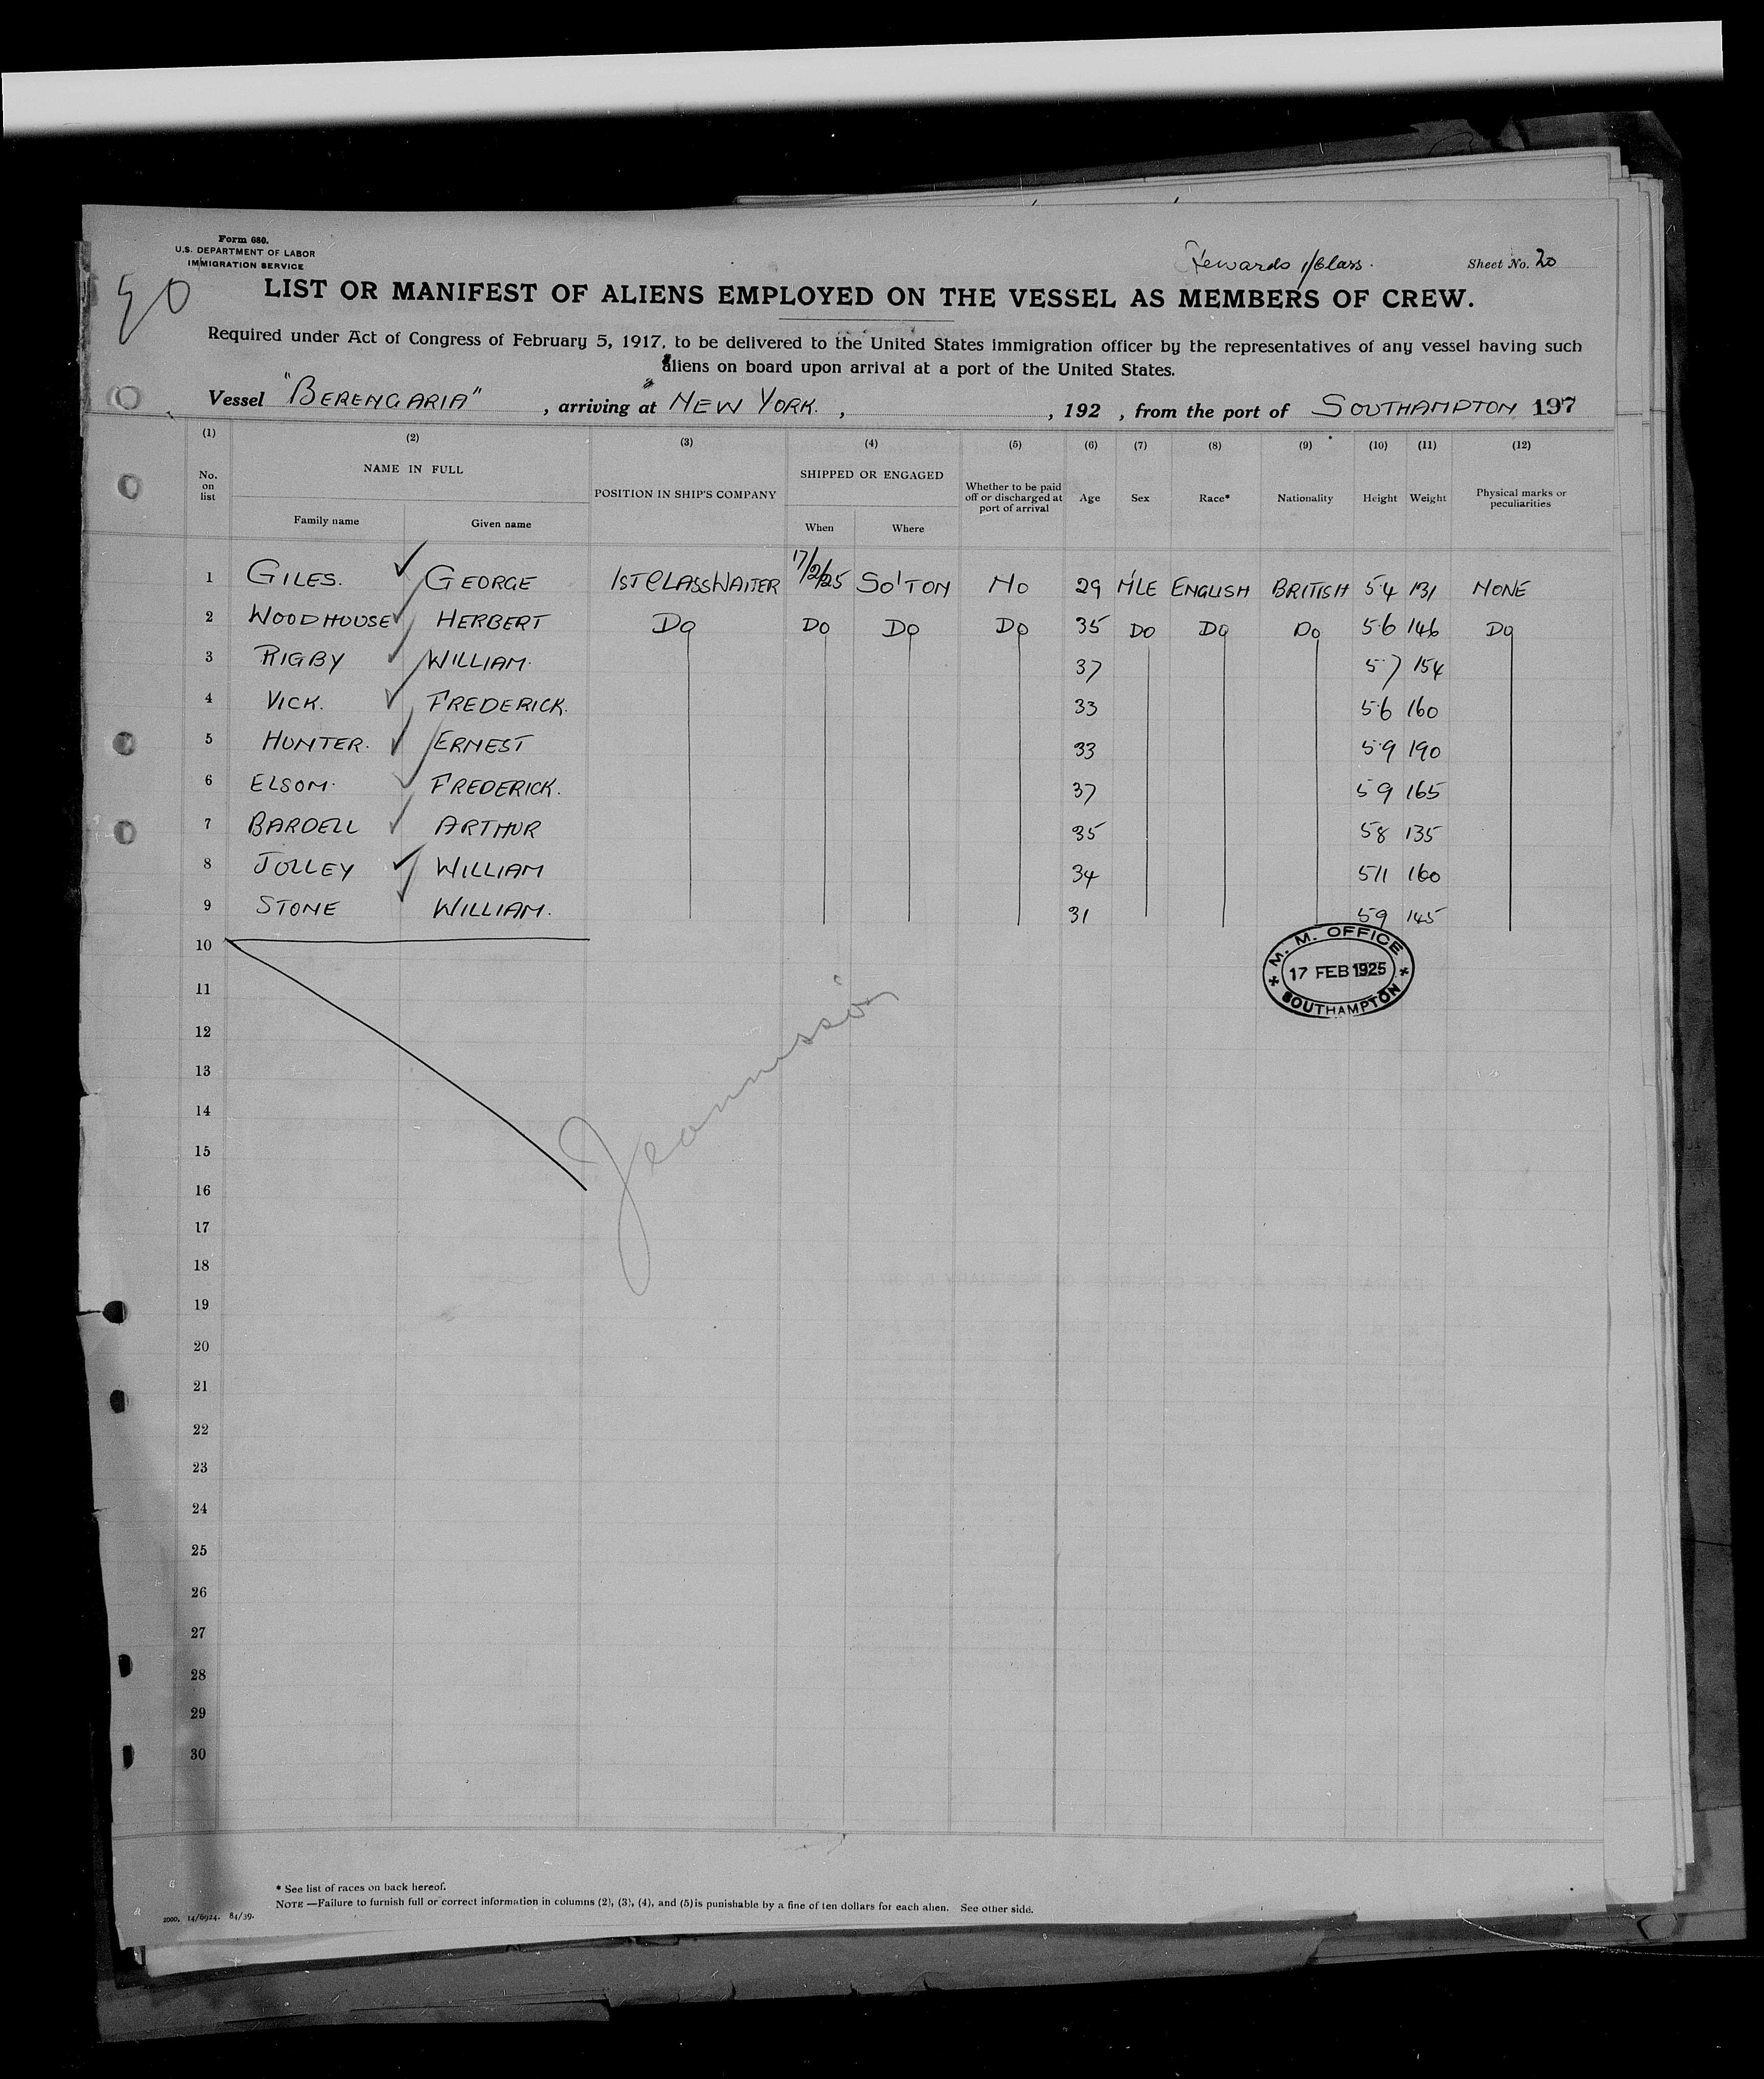 Form 680.
U.S. DEPARTMENT OF LABOR
IMMIGRATION SERVICE
90
Stewards 1/Class.
Sheet No. 20
LIST OR MANIFEST OF ALIENS EMPLOYED ON THE VESSEL AS MEMBERS OF CREW.
Required under Act of Congress of February 5, 1917, to be delivered to the United States immigration officer by the representatives of any vessel having such
aliens on board upon arrival at a port of the United States.
Vessel "BERENGARIA" , arriving at NEW YORK. , , 192 , from the port of SOUTHAMPTON 197
(1) (2) (3) (4) (5) (6) (7) (8) (9) (10) (11) (12)
No. on list NAME IN FULL POSITION IN SHIP'S COMPANY SHIPPED OR ENGAGED Whether to be paid off or discharged at port of arrival Age Sex Race* Nationality Height Weight Physical marks or peculiarities
Family name Given name When Where
1 GILES. GEORGE 1ST CLASS WAITER 17/2/25 SO'TON NO 29 M'LE ENGLISH BRITISH 5 4 131 NONE
2 WOODHOUSE HERBERT DO DO DO DO 35 DO DO DO 5.6 146 DO
3 RIGBY WILLIAM. 37 5.7 154
4 VICK. FREDERICK. 33 5.6 160
5 HUNTER. ERNEST 33 5.9 190
6 ELSOM. FREDERICK. 37 5 9 165
7 BARDELL ARTHUR 35 58 135
8 JOLLEY WILLIAM 34 511 160
9 STONE WILLIAM. 31 59 145
10
M. M. OFFICE
17 FEB 1925
SOUTHAMPTON
11
12
13
14
15
16
17
18
19
20
21
22
23
24
25
26
27
28
29
30
* See list of races on back hereof.
NOTE —Failure to furnish full or correct information in columns (2), (3), (4), and (5) is punishable by a fine of ten dollars for each alien. See other side.
2000. 14/6924. 84/39.